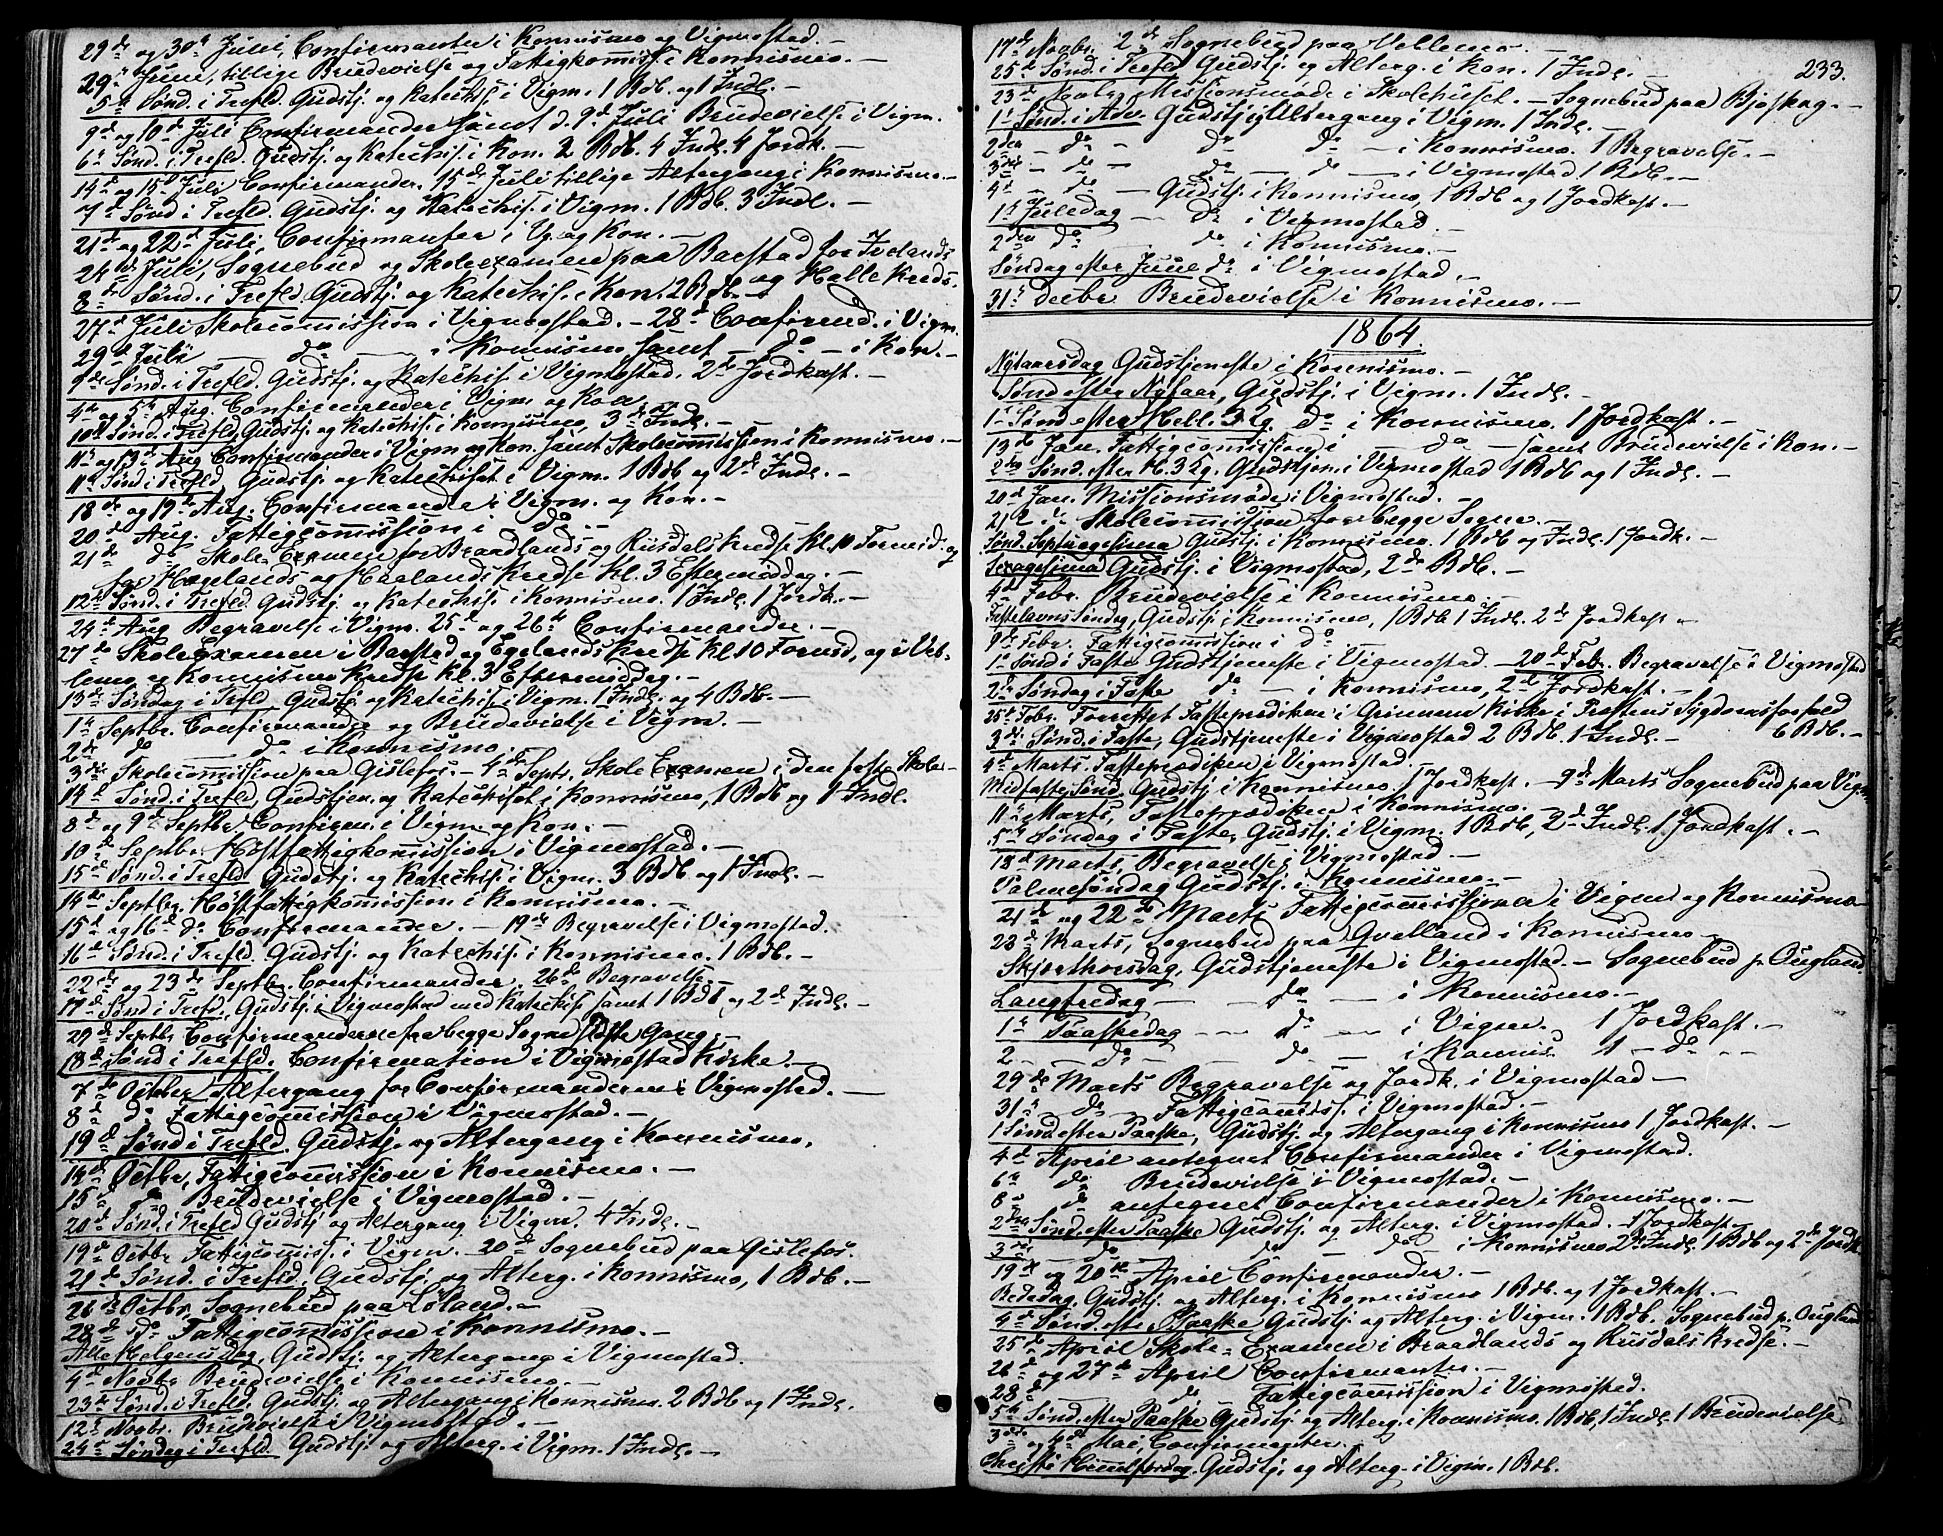 29de og 30te Juni, Confirmanter i Konnismo og Vigmostad. —
29de Juni, tillige Brudevielse og Fattigkomiss. i Konnismo. —
5te Sønd. i Trefld. Gudstj. og Katechis. i Vigm. 1 BdB. og 1 Indl. —
9de og 10de Juli Confirmander samt d. 9de Juli Brudevielse i Vigm.
6te Sønd. i Trefld. Gudstj. og Katechis. i Kon. 2 BdB. 4 Indl. 4 Jordk. —
14de og 15de Juli Confirmander. 15de Juli tillige Altergang i Konnismo. —
7de Sønd i Trefld. Gudstj. og Katechis. i Vigm. 1 BdB. 3 Indl. —
21de og 22de Juli, Confirmanter i V. og Kon. —
24de Juli, Sognebud og Skoleexamen paa Barstad for Ivelands
og Halle Kreds.
8de Sønd. i Trefld. Gudstj. og Katechis. i Kon. 2 BdB. —
27de Juli Skolecomission i Vigmostad. — 28de Confirmd. i Vigm.
29de Juli — do — i Konnismo samt — do — i Kon. —
9de Sønd. i Trefld. Gudstj. og Katechis. i Vigmostad. 2de Jordkast. —
4de og 5te Aug. Confirmander i Vigm og Kon.
10de Sønd. i Trefld. Gudstj. og Katechis. i Konnismo, 3de Indl. —
11te og 13de Aug Confirmander i Vigm og Kon. samt Skolecomission i Konnismo. —
11te Sønd i Trefld. Gudstj. og Katechiset i Vigm. 1 BdB og 2de Indl. —
18de og 19de Aug. Confirmander i Vigm. og Kon. —
20de Aug. Fattigcomission i do. —
21de do Skole-Examen for Braadlands og Risdals Kredse Kl. 10 Formd. og
for Høgelands og Haalands Kredse Kl. 3 Eftermiddag. —
12te Sønd. i Trefld. Gudstj. og Katechis. i Konnismo. 1 Indl. 1 Jordk. —
24de Aug Begravelse i Vigm. 25de og 26de Confirmander. —
27de Skoleexamen i Barstad og Egelands Kredse Kl. 10 Formd, og i Vel-
lemo og Konnismo Kredse Kl. 3 Eftermiddag. —
13de Søndag i Trefld. Gudstj. og Katechis. i Vigm. 1 Indl. og 4 BdB. —
1te Septbr. Confirmander og Brudevielse i Vigm. —
2de do do i Konnismo. —
3de Skolecomission paa Gislefos. — 4de Septr. Skole Examen i den faste Skole —
14de Sønd. i Trefld, Gudstjen. og Katechiset i Konnismo, 1 BdB og 1 Indl.
8de og 9de Septbr, Confirm. i Vigm. og Kon. —
10de Septbr. Høstfattigkomission i Vigmostad. —
15de Sønd. i Trefld. Gudstj. og Katechis. i Vigm. 3 BdB og 1 Indl. —
14de Septbr. Høstfattigkomission i Konnismo. —
15de og 16de do Confirmander. — 19de Begravelse i Vigmostad.
16de Sønd. i Trefld. Gudstj. og Katechis. i Konnismo. 1 BdB. —
22de og 23de Septbr. Confirmander. 26de Begravelse
17de Sønd i Trefld., Gudstj. i Vigmostad med Katechis. samt 1 BdB og 2de Indl. —
29de Septbr Confirmanderne fra begge Sogne sidste Gang. —
18de Sønd i Trefld. Confirmation i Vigmostad Kirke. —
7de Octbr, Altergang for Confirmanderne i Vigmostad. —
8de do Fattigcomission i Vigmostad. —
19de Sønd i Trefld. Gudstj. og Altergang i Konnismo.
14de Octbr, Fattigcomission i Konnismo. —
15de do Brudevielse i Vigmostad. —
20de Sønd. i Trefld Gudstj. og Altergang i Vigm. 4 Indl. —
19de Octbr Fattigcomiss. i Vigm. 20de Sognebud paa Gislefos.
21de Sønd. i Trefld, Gudstj. og Alterg. i Konnismo, 1 BdB. —
26de Octbr, Sognebud paa Løland. —
28de do Fattigcomission i Konnismo. —
Alle Helgensdag, Gudstj. og Altergang i Vigmostad.
4de Novbr Brudevielse i Konnismo. —
23de Sønd. i Trefld. Gudstj. og Altergang i Konnismo. 2 BdB og 1 Indl.
12te Novbr. Brudevielse i Vigmostad. —
24de Søndag i Trefld. Gudstj. og Alterg. i Vigm. 1 Indl. —
233.
17de Novbr. 2de Sognebud paa Vellemo. —
25de Sønd. i Trefld Gudstj. og Alterg. i Kon. 1 Indl. —
23de Novbr Missionsmøde i Skolehuset. — Sognebud paa Bjoskag. —
1te Sønd. i Adv. Gudstj. og Altergang i Vigm. 1 Indl. —
2den — do — do do — i Konnismo. 1 Begravelse. —
3die — do — do — do — i Vigmostad 1 BdB. —
4de — do — Gudstj. i Konnismo, 1 BdB og 1 Jordkast. —
1te Juledag — do i Vigmostad.
2den do do i Konnismo. —
Søndag efter Juul do i Vigmostad. —
31te decbr Brudevielse i Konnismo. —
1864.
Nytaarsdag Gudstjeneste i Konnismo. —
Sønd efter Nytaar, Gudstj. i Vigm. 1 Indl. —
1te Sønd efter Hell. 3 Kg. do i Konnismo. 1 Jordkast. —
13de Jan. Fattigcomission i — do — samt Brudevielse i Kon. —
2den Sønd. efter H. 3 Kg. Gudstjen. i Vigmostad 1 BdB og 1 Indl. —
20de Jan. Missionsmøde i Vigmostad. —
21de do Skolecomission for begge Sogne. —
Sønd. Septuagesima Gudstj. i Konnismo. 1 BdB og Indl. 1 Jordk. —
Sexagesima Gudstj. i Vigmostad, 2de BdB. —
4de Febr. Brudevielse i Konnismo. —
Fastelavns Søndag, Gudstj. i Konnismo, 1 BdB 1 Indl. 2de Jordkast —
9de Febr. Fattigcomission i do
1te Sønd i Faste Gudstjeneste i Vigmostad. — 20de Feb. Begravelse i Vigmostad
2de Søndag i Faste do — i Konnismo, 2de Jordkast. —
25de Febr. Forrettet Fasteprædiken i Grinnem Kirke i Provstens Sygdomsforfald
6 BdB. —
3die Sønd. i Faste, Gudstjeneste i Vigmostad 2 BdB. 1 Indl. —
4de Marts. Fasteprædiken i Vigmostad. —
Midfaste Sønd. Gudstj. i Konnismo, 1 Jordkast. — 9de Marts Sognebud paa Vigm
11te Marts, Fasteprædiken i Konnismo. —
5te Søndag i Faste, Gudstj. i Vigm. 1 BdB, 2de Indl. 1 Jordkast. —
18de Marts, Begravelse i Vigmostad. —
Palmesøndag Gudstj. i Konnismo. —
21de og 22de Marts Fattigcomissioner i Vigm og Konnismo
23de Marts, Sognebud paa Qvelland i Konnismo —
Skjærthorsdag, Gudstjeneste i Vigmostad. — Sognebud p. Ougland
Langfredag — do — i Konnismo. —
1te Paaskedag — do — i Vigm. 1 Jordkast. —
2 — do — do — i Konnis. 1 — do — —
29de Marts Begravelse og Jordk. i Vigmostad —
31te do — Fattigcomiss. i Vigmostad. —
1 Sønd efter Paaske, Gudstj. og Altergang i Konnismo 1 Jordkast. —
4de April antegnet Confirmander i Vigmostad.
6te do Brudevielse i Vigmostad. —
8de do antegnet Confirmander i Konnismo. —
2den Sønd. efter Paaske Gudstj. og Alterg. i Vigmostad. 1 Jordkast —
3die — do — do — do — i Konnismo 2de Indl. 1 BdB og 2de Jordk
19de og 20de April Confirmander. —
Bededag, Gudstj. og Alterg. i Konnismo 1 BdB og 1 Jordkast. —
4de Sønd. efter Paaske Gudstj. og Alterg. i Vigm. 1 BdB. Sognebud p. Ougland
25de April Skole-Examen i Braadlands og Rusdals Kredse. —
26de og 27de April Confirmanter. —
28de do Fattigcomission i Vigmostad.
5te Sønd. efter Paaske Gudstj. og Alterg. i Konnismo. 1 BdB, 1 Indl. 1 Brudevielse
3die og 4de Mai, Confirmanter.
Christi Himmelfartsdag. Gudstj. og Alterg. i Vigm. 1 BdB.